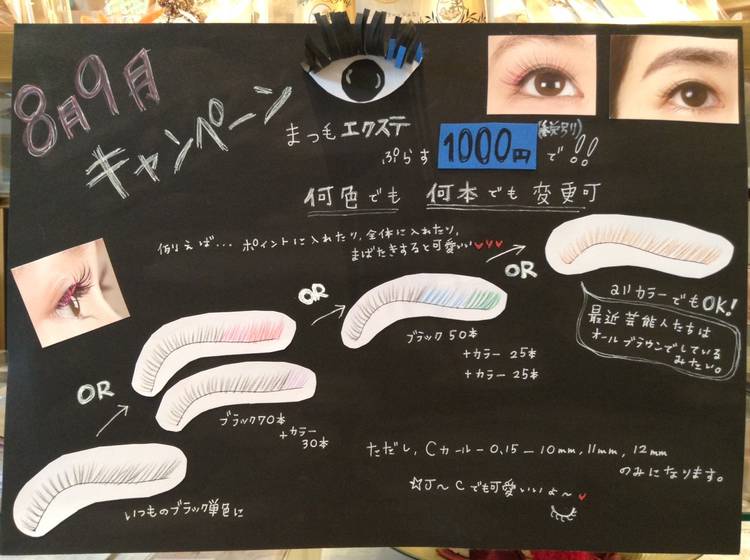 8月9月
キャンペーン
まつもエクステ
ぷらす 1000円(税別)で!!
何色でも 何本でも 変更可
例えば... ポイントに入れたり、全体に入れたり、
まばたきすると可愛い♥♥♥
OR
allカラーでもOK!
最近芸能人たちは
オールブラウンでしている
みたい。
OR
ブラック50本
+カラー 25本
+カラー 25本
OR
ブラック70本
+カラー
30本
いつものブラック単色に
ただし、Cカールー0.15ー10mm,11mm,12mm
のみになります。
☆J〜Cでも可愛いいよ〜♥